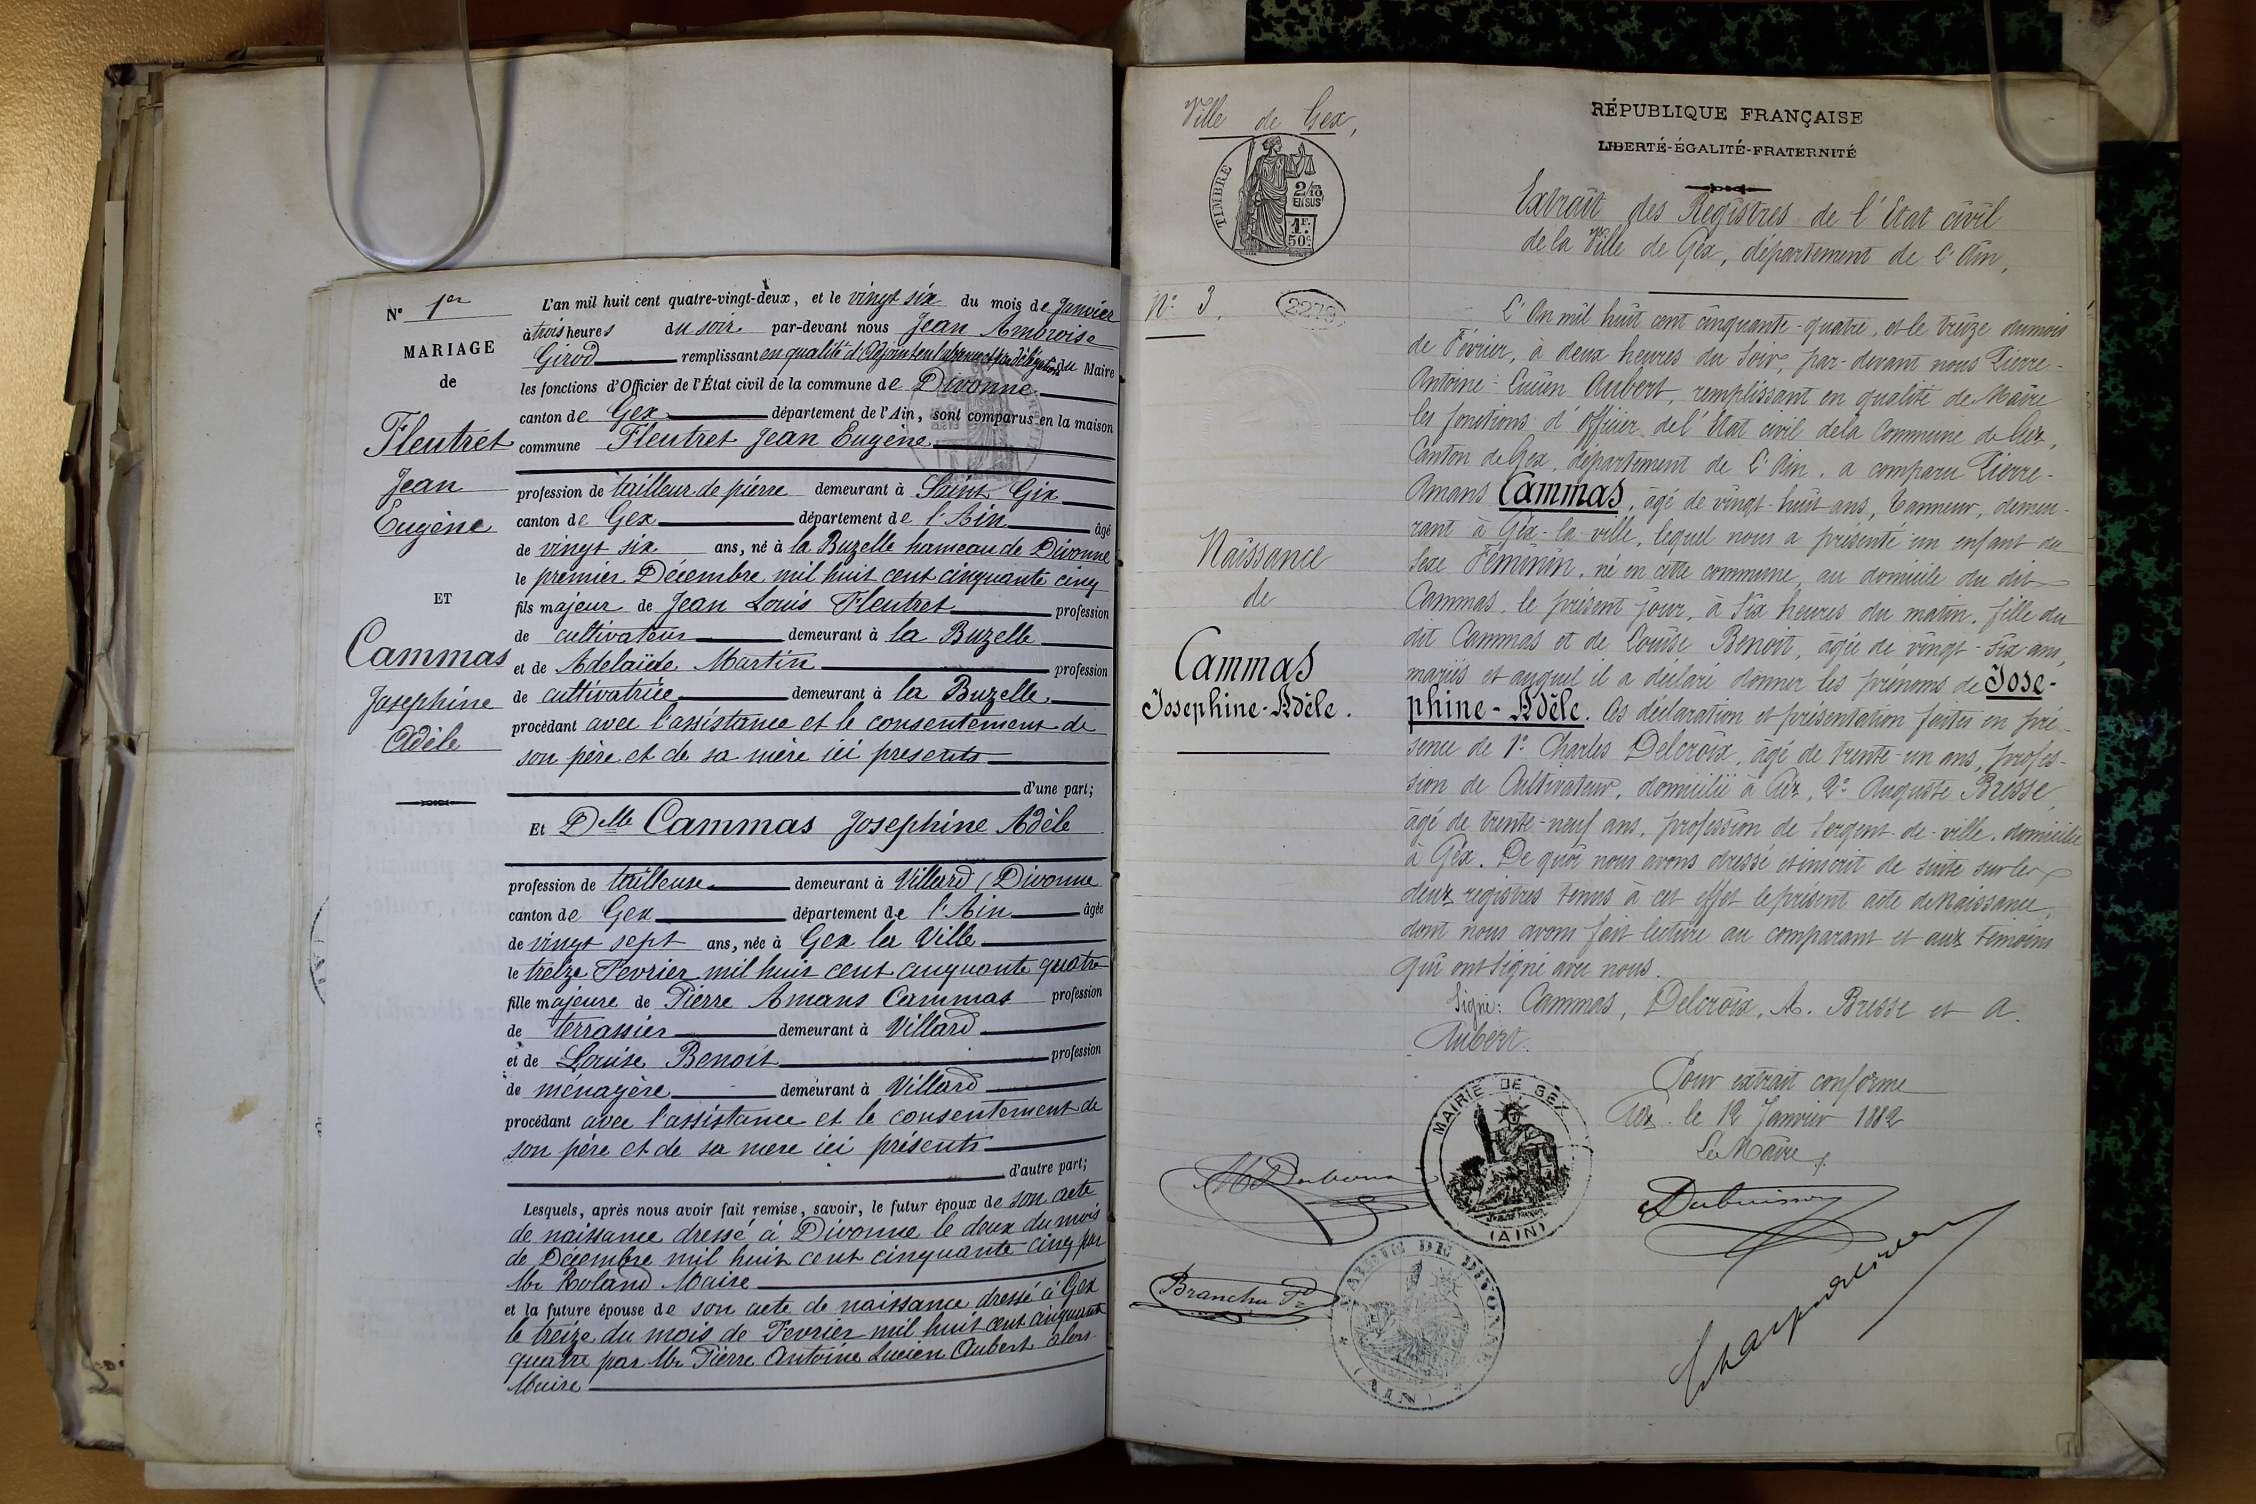 N° 1er
MARIAGE
de
Fleutret
Jean
Eugène
ET
Cammas
Josephine
Adèle
L'an mil huit cent quatre-vingt-deux, et le vingt six du mois de Janvier
à trois heures du soir par-devant nous Jean Ambroise
Girod remplissant en qualité d'Adjoint en l'absence et par délégation du Maire
les fonctions d'Officier de l'État civil de la commune de Divonne
canton de Gex département de l'Ain, sont comparus en la maison
commune Fleutret Jean Eugène
profession de tailleur de pierre demeurant à Saint Gix
canton de Gex département de l'Ain âgé
de vingt six ans, né à la Buzelle hameau de Divonne
le premier Décembre mil huit cent cinquante cinq
fils majeur de Jean Louis Fleutret profession
de cultivateur demeurant à la Buzelle
et de Adelaïde Martin profession
de cultivatrice demeurant à la Buzelle
procédant avec l'assistance et le consentement de
son père et de sa mère ici presents
d'une part;
Et Delle Cammas Josephine Adèle
profession de tailleuse demeurant à Villard (Divonne
canton de Gex département de l'Ain âgée
de vingt sept ans, née à Gex la Ville
le treize Fevrier mil huit cent cinquante quatre
fille majeure de Pierre Amans Cammas profession
de terrassier demeurant à Villard
et de Louise Benoit profession
de ménagère demeurant à Villard
procédant avec l'assistance et le consentement de
son père et de sa mere ici présents
d'autre part;
Lesquels, après nous avoir fait remise, savoir, le futur époux de son acte
de naissance dressé à Divonne le deux du mois
de Décembre mil huit cent cinquante cinq par
Mr Roland Maire
et la future épouse de son acte de naissance dressé à Gex
le treize du mois de Fevrier mil huit cent cinquante
quatre par Mr Pierre Antoine Lucien Aubert alors
Maire
Ville de Gex,
TIMBRE
2/10
EN SUS
1F.
50c
N° 3.
2279
Naissance
de
Cammas
Josephine-Adèle.
RÉPUBLIQUE FRANÇAISE
LIBERTÉ-ÉGALITÉ-FRATERNITÉ
Extrait des Registres de l'Etat civil
de la Ville de Gex, département de l'Ain,
L'An mil huit cent cinquante-quatre, et le treize du mois
de Février, à deux heures du Soir, par-devant nous Pierre-
Antoine-Lucien Aubert, remplissant en qualité de Maire
les fonctions d'Officier de l'Etat civil de la Commune de Gex,
Canton de Gex, département de l'Ain, a comparu Pierre-
Amans Cammas, âgé de vingt-huit ans, Tanneur, demeu-
rant à Gex-la-ville, lequel nous a présenté un enfant du
Sexe Féminin, né en cette commune, au domicile du dit
Cammas, le présent jour, à Six heures du matin, fille du
dit Cammas et de Louise Benoit, âgée de vingt-six ans,
mariés et auquel il a déclaré donner les prénoms de Jose-
phine-Adèle. Ces déclaration et présentation faites en pré-
sence de 1° Charles Delcroix, âgé de trente-un ans, profes-
sion de Cultivateur, domicilié à Gex, 2° Auguste Bresse,
âgé de trente-neuf ans, profession de Sergent-de-ville, domicilié
à Gex. De quoi nous avons dressé et inscrit de suite sur les
deux registres tenus à cet effet le présent acte de Naissance,
dont nous avons fait lecture au comparant et aux témoins
qui ont Signé avec nous.
Signé: Cammas, Delcroix, A. Bresse et A.
Aubert.
Pour extrait conforme
Gex le 12 Janvier 1882
Le Maire,
MAIRIE DE GEX
(AIN)
Dubuisson
Branchu
MAIRIE DE DIVONNE
(AIN)